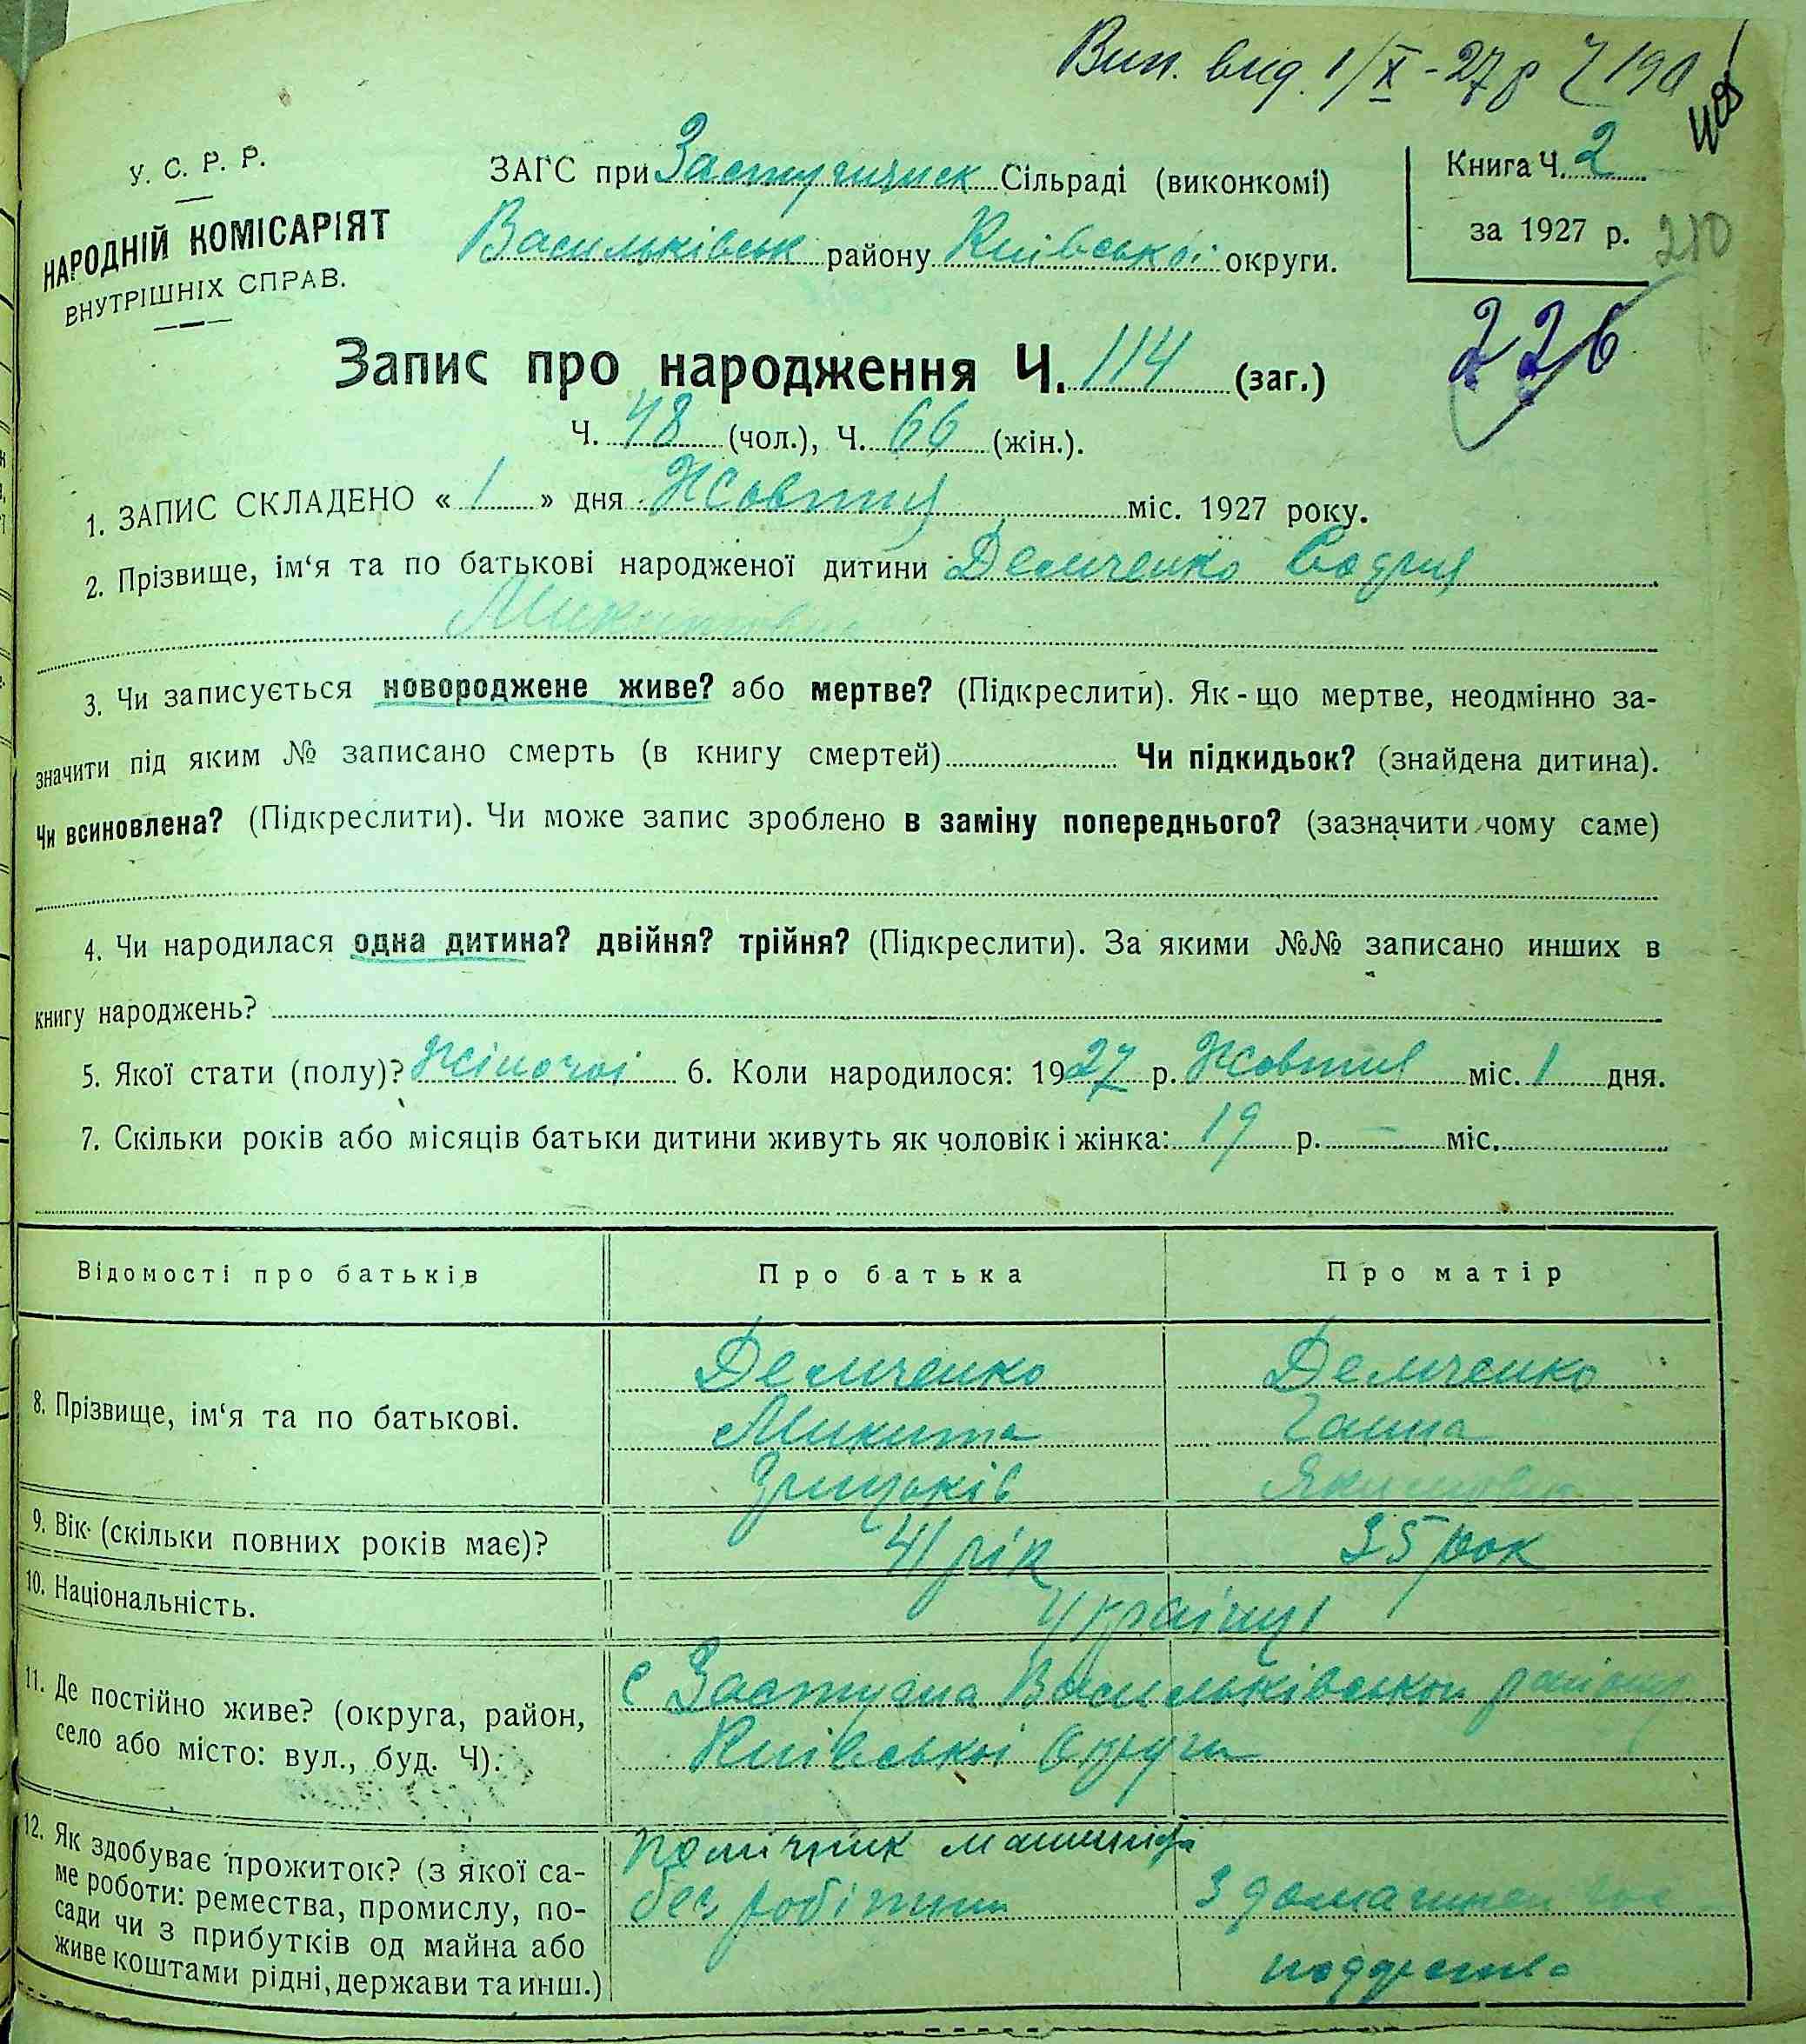 Вип. вид. 1/X - 27 р Ч 190
У. С. Р. Р.
НАРОДНІЙ КОМІСАРІЯТ
ВНУТРІШНІХ СПРАВ.
ЗАГС при Застугнянск Сільраді (виконкомі)
Васильківськ району Київської округи.
Книга Ч. 2
за 1927 р.
210
226
Запис про народження Ч. 114 (заг.)
Ч. 48 (чол.), Ч. 66 (жін.).
1. ЗАПИС СКЛАДЕНО « 1 » дня Жовтня міс. 1927 року.
2. Прізвище, ім‘я та по батькові народженої дитини Демченко
Микитовна
3. Чи записується новороджене живе? або мертве? (Підкреслити). Як - що мертве, неодмінно за-
значити під яким № записано смерть (в книгу смертей) Чи підкидьок? (знайдена дитина).
Чи всиновлена? (Підкреслити). Чи може запис зроблено в заміну попереднього? (зазначити чому саме)
4. Чи народилася одна дитина? двійня? трійня? (Підкреслити). За якими №№ записано инших в
книгу народжень?
5. Якої стати (полу)? Жіночої 6. Коли народилося: 1927 р. Жовтня міс. 1 дня.
7. Скільки років або місяців батьки дитини живуть як чоловік і жінка: 19 р. — міс.
Відомості про батьків Про батька Про матір
8. Прізвище, ім‘я та по батькові.
Демченко Демченко
Микита Ганна
Грицьків Якимовна
9. Вік (скільки повних років має)? 41 рік 35 рок
10. Національність. Українці
11. Де постійно живе? (округа, район,
село або місто: вул., буд. Ч):
с Застугна Васильківського району
Київської округи
12. Як здобуває прожиток? (з якої са-
ме роботи: ремества, промислу, по-
сади чи з прибутків од майна або
живе коштами рідні, держави та инш.)
помічник машиніста
без робітний
з домашнього гос
подарства